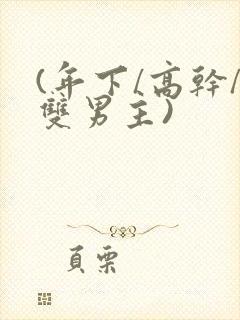 (年下/高幹/
雙男主)
頁栗